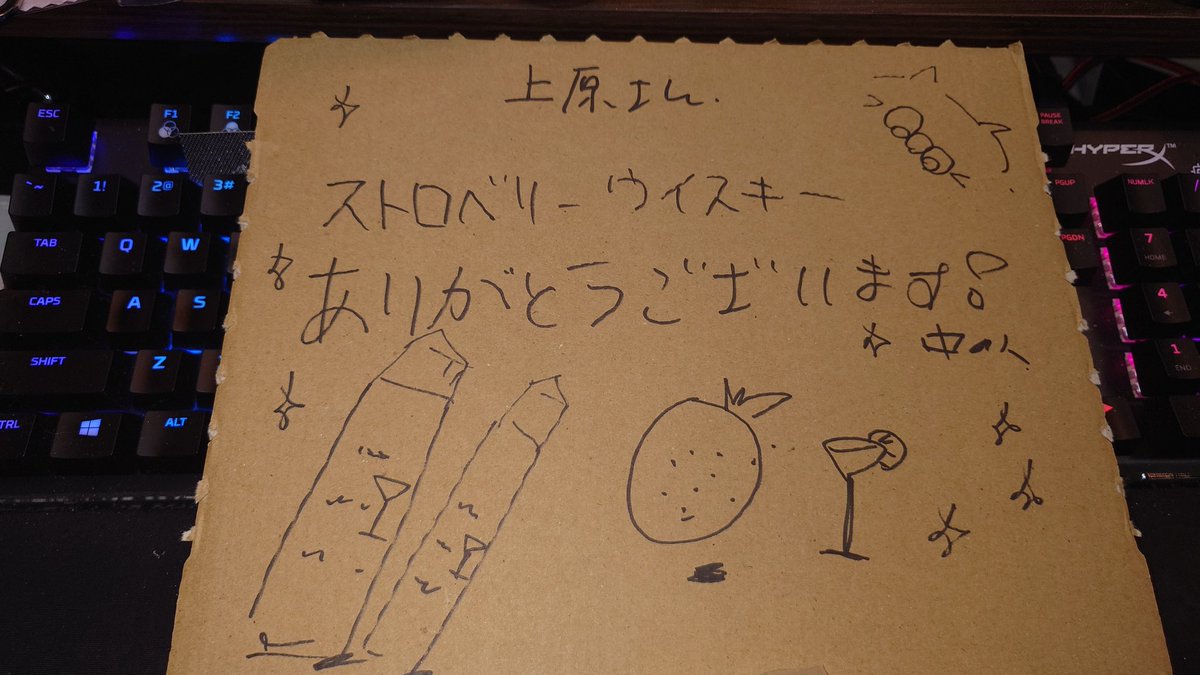 上原、
ストロベリーウイスキー
ありがとうございます!
中の人
ESC F1 F2
PAUSE BREAK
HYPERX™
`~ 1! 2@ 3#
PGUP NUMLK
TAB Q W
PGDN 7 HOME
CAPS A S
4
SHIFT Z
1 END
ALT